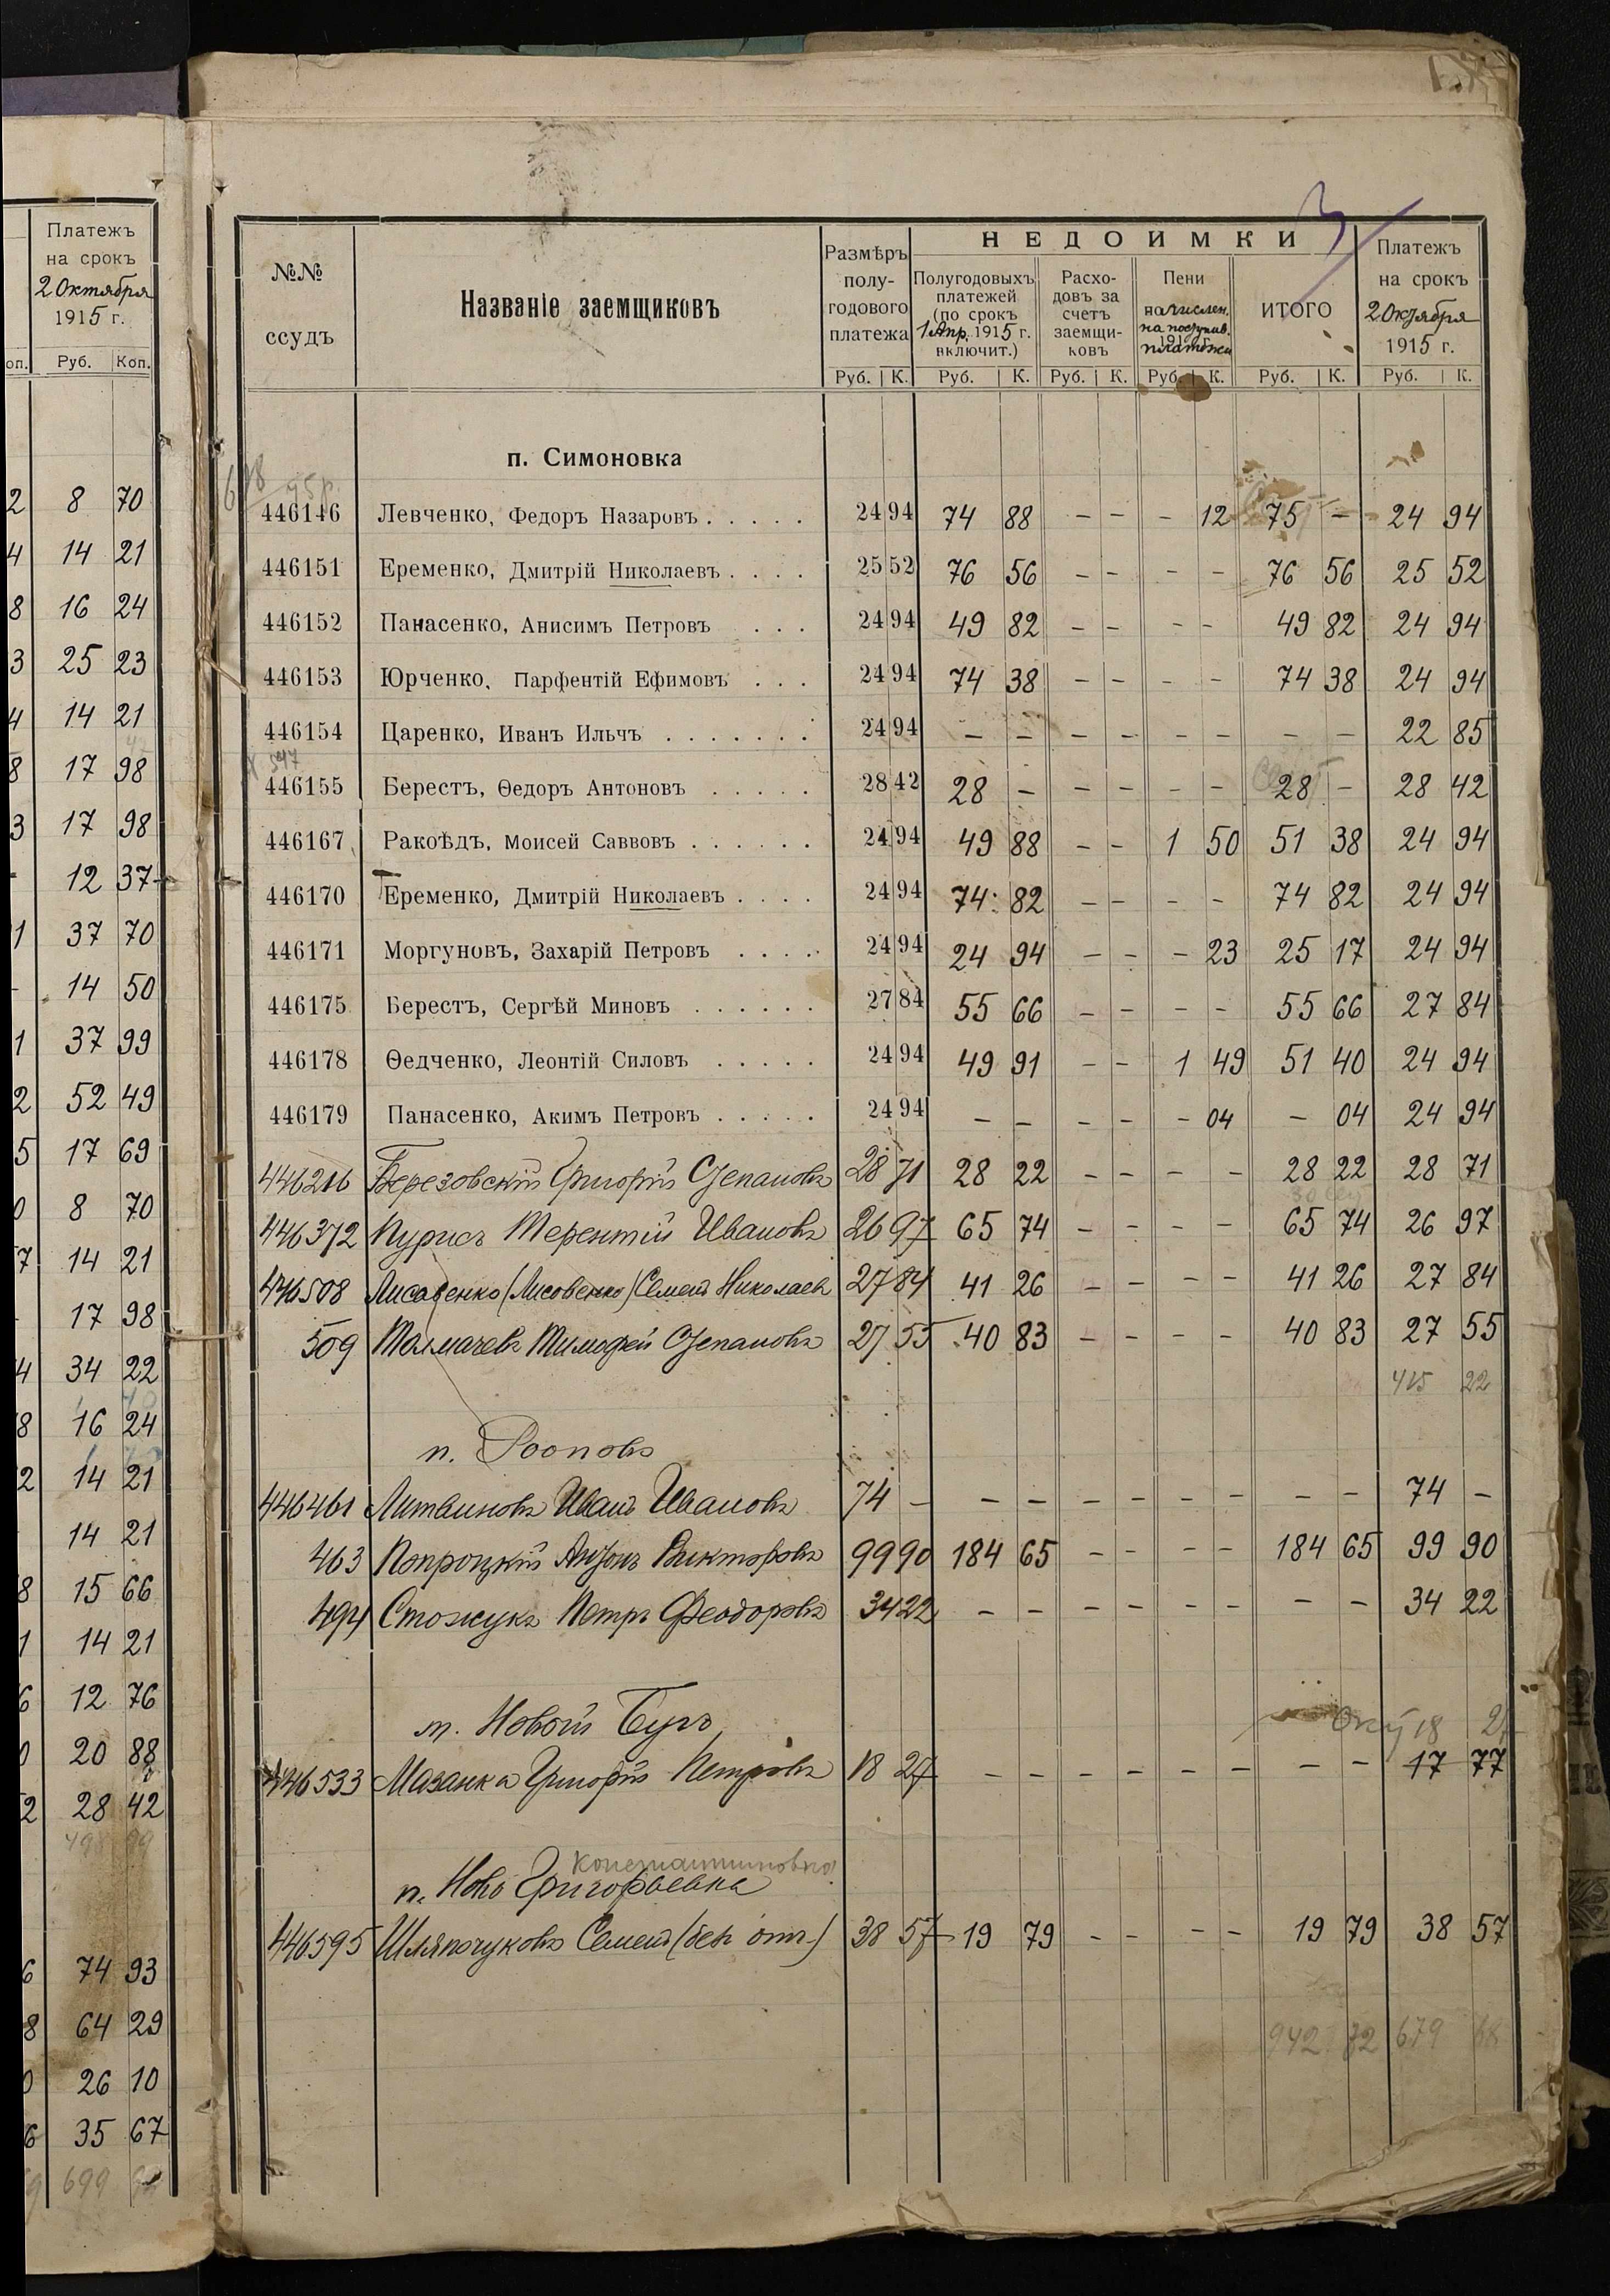 Платежъ
на срокъ
2 Октября
1915 г.
оп. Руб. Коп.
2 8 70
4 14 21
8 16 24
3 25 23
4 14 21
8 17 98
3 17 98
- 12 37
1 37 70
- 14 50
1 37 99
2 52 49
5 17 69
0 8 70
7 14 21
- 17 98
4 34 22
8 16 24
2 14 21
14 21
8 15 66
1 14 21
6 12 76
0 20 88
2 28 42
6 74 93
8 64 29
0 26 10
6 35 67
699
№№
ссудъ
Названіе заемщиковъ
Размѣръ
полу-
годового
платежа
НЕДОИМКИ
Полугодовыхъ
платежей
(по срокъ
1 Апр. 1915 г.
включит.)
Расхо-
довъ за
счетъ
заемщи-
ковъ
Пени
начислен.
на поступив.
платежи
ИТОГО
Платежъ
на срокъ
2 Октября
1915 г.
Руб. К. Руб. К. Руб. К. Руб. К. Руб. К. Руб. К.
п. Симоновка
95 р.
446146 Левченко, Федоръ Назаровъ . . . . . 24 94 74 88 - - - 12 75 - 24 94
446151 Еременко, Дмитрій Николаевъ . . . . 25 52 76 56 - - - - 76 56 25 52
446152 Панасенко, Анисимъ Петровъ . . . 24 94 49 82 - - - - 49 82 24 94
446153 Юрченко, Парфентій Ефимовъ . . . 24 94 74 38 - - - - 74 38 24 94
446154 Царенко, Иванъ Ильчъ . . . . . . . 24 94 - - - - - - - - 22 85
547
446155 Берестъ, Ѳедоръ Антоновъ . . . . . 28 42 28 - - - - - 28 - 28 42
446167 Ракоѣдъ, Моисей Саввовъ . . . . . . 24 94 49 88 - - 1 50 51 38 24 94
446170 Еременко, Дмитрій Николаевъ . . . . 24 94 74 82 - - - - 74 82 24 94
446171 Моргуновъ, Захарій Петровъ . . . . 24 94 24 94 - - - 23 25 17 24 94
446175 Берестъ, Сергѣй Миновъ . . . . . . 27 84 55 66 - - - - 55 66 27 84
446178 Ѳедченко, Леонтій Силовъ . . . . . 24 94 49 91 - - 1 49 51 40 24 94
446179 Панасенко, Акимъ Петровъ . . . . . 24 94 - - - - - 04 - 04 24 94
446216 Березовскій Григорій Степановъ 28 71 28 22 - - - - 28 22 28 71
446372 Пурисъ Терентій Ивановъ 26 97 65 74 - - - - 65 74 26 97
446508 Лисавенко (Лисовенко) Семенъ Николаев 27 84 41 26 - - - - 41 26 27 84
509 Толмачевъ Тимофей Степановъ 27 55 40 83 - - - - 40 83 27 55
415 22
п. Роопово
446461 Литвиновъ Иванъ Ивановъ 74 - - - - - - - - - 74 -
463 Копроцкій Антонъ Викторовъ 99 90 184 65 - - - - 184 65 99 90
494 Стожукъ Петръ Феодоровъ 34 22 - - - - - - - - 34 22
м. Новый Бугъ
18 2
446533 Мазанка Григорій Петровъ 18 27 - - - - - - - - 17 77
Константиновка
п. Ново Григорьевка
446595 Шляпочуковъ Семенъ (безъ отч.) 38 57 19 79 - - - - 19 79 38 57
942 72 679 68